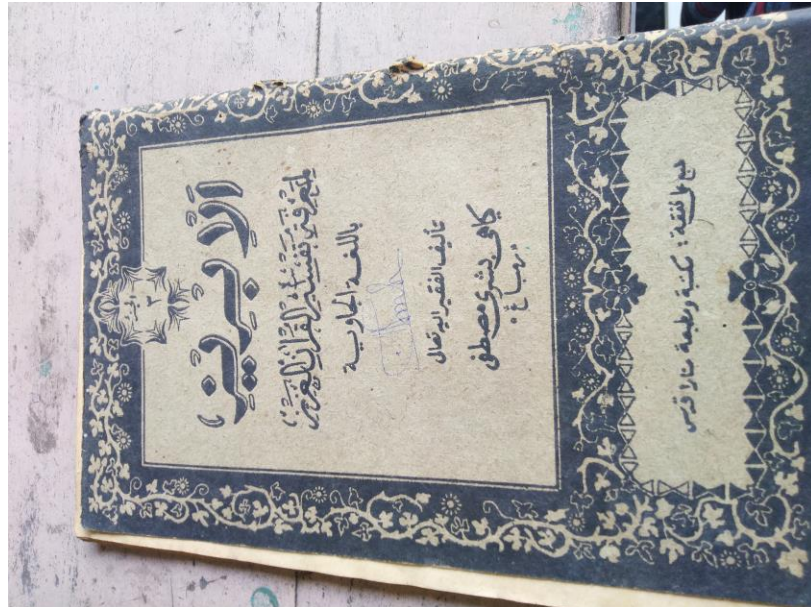 ٣
اَلْاِبْرِيْز
لِمَعْرِفَةِ تَفْسِيْرِ الْقُرْآنِ الْعَزِيْز
باللغة الجاوية
تأليف الفقير اليه تعالى
كياهى بشرى مصطفى
رمباغ.
طبع على نفقة: مكتبة ومطبعة منارا قدس